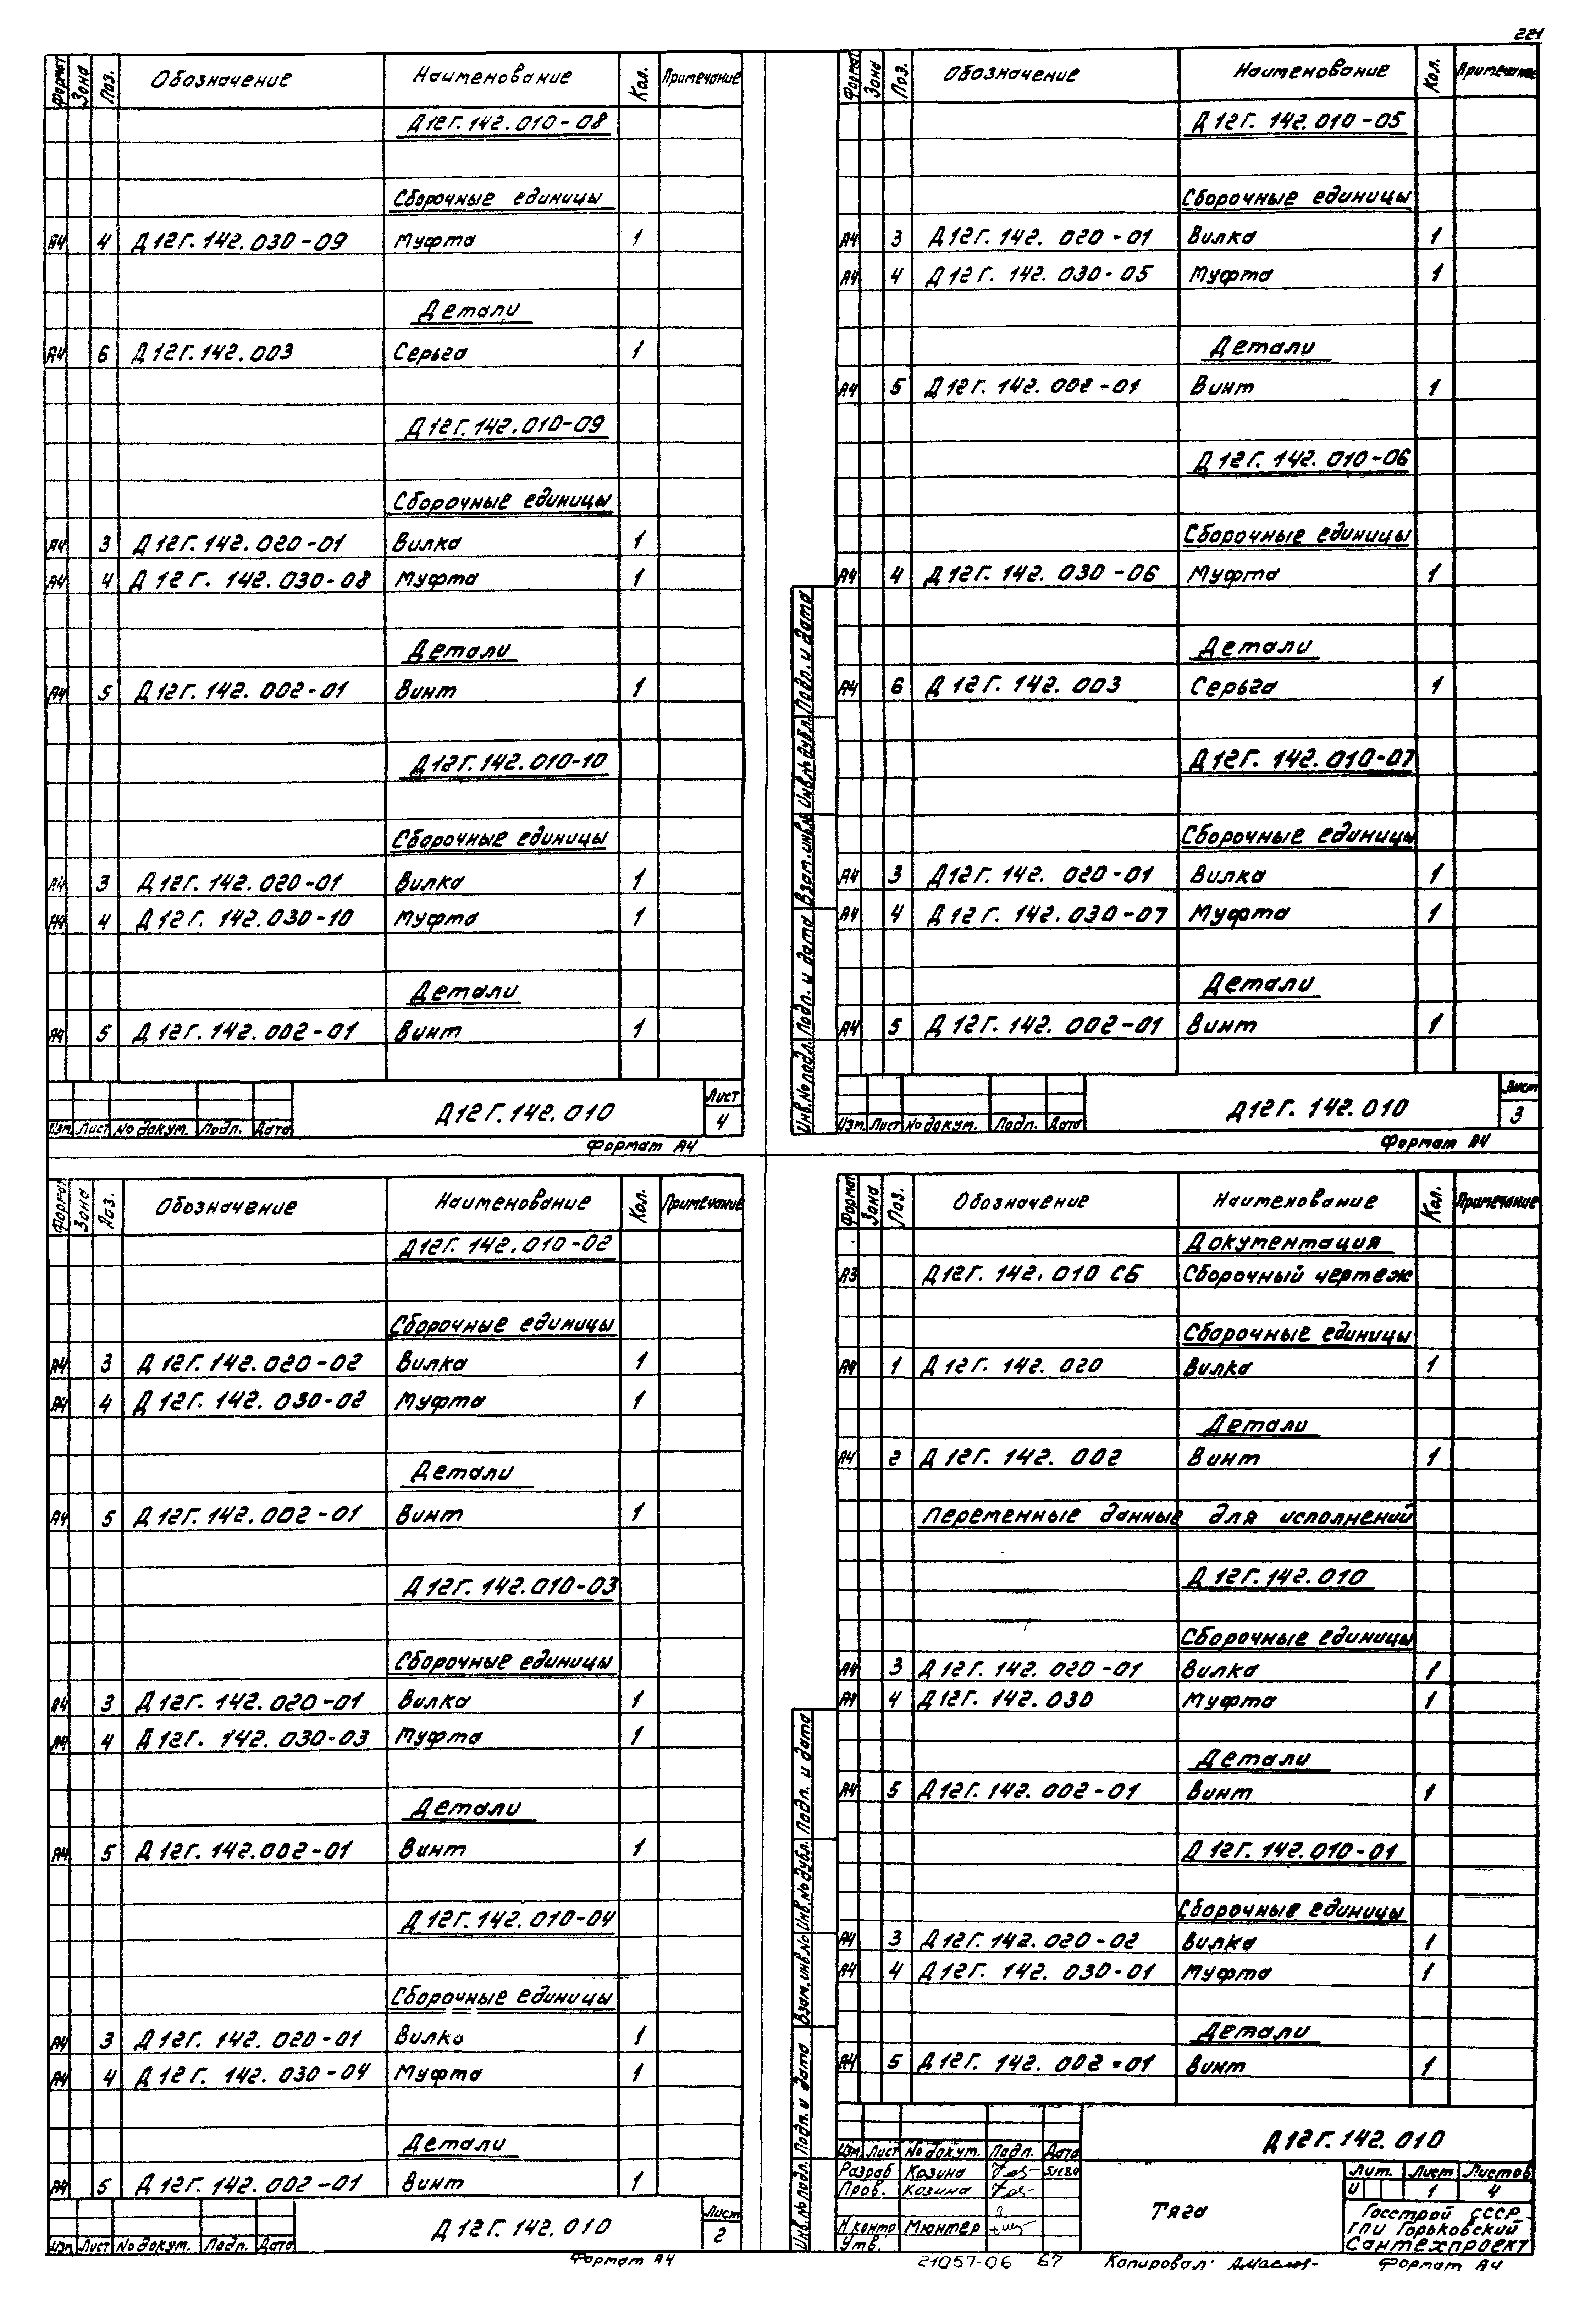 221
Формат Зона Поз. Обозначение Наименование Кол. Примечание
Д12Г.142.010-08
Сборочные единицы
А4 4 Д12Г.142.030-09 Муфта 1
Детали
А4 6 Д12Г.142.003 Серьга 1
Д12Г.142.010-09
Сборочные единицы
А4 3 Д12Г.142.020-01 Вилка 1
А4 4 Д12Г.142.030-08 Муфта 1
Детали
А4 5 Д12Г.142.002-01 Винт 1
Д12Г.142.010-10
Сборочные единицы
А4 3 Д12Г.142.020-01 Вилка 1
А4 4 Д12Г.142.030-10 Муфта 1
Детали
А4 5 Д12Г.142.002-01 Винт 1
Изм. Лист № докум. Подп. Дата
Д12Г.142.010
Лист
4
Формат А4
Формат Зона Поз. Обозначение Наименование Кол. Примечание
Д12Г.142.010-05
Сборочные единицы
А4 3 Д12Г.142.020-01 Вилка 1
А4 4 Д12Г.142.030-05 Муфта 1
Детали
А4 5 Д12Г.142.002-01 Винт 1
Д12Г.142.010-06
Сборочные единицы
А4 4 Д12Г.142.030-06 Муфта 1
Детали
А4 6 Д12Г.142.003 Серьга 1
Д12Г.142.010-07
Сборочные единицы
А4 3 Д12Г.142.020-01 Вилка 1
А4 4 Д12Г.142.030-07 Муфта 1
Детали
А4 5 Д12Г.142.002-01 Винт 1
Инв.№ подл. Подп. и дата Взам.инв.№ Инв.№ дубл. Подп. и дата
Изм. Лист № докум. Подп. Дата
Д12Г.142.010
Лист
3
Формат А4
Формат Зона Поз. Обозначение Наименование Кол. Примечание
Д12Г.142.010-02
Сборочные единицы
А4 3 Д12Г.142.020-02 Вилка 1
А4 4 Д12Г.142.030-02 Муфта 1
Детали
А4 5 Д12Г.142.002-01 Винт 1
Д12Г.142.010-03
Сборочные единицы
А4 3 Д12Г.142.020-01 Вилка 1
А4 4 Д12Г.142.030-03 Муфта 1
Детали
А4 5 Д12Г.142.002-01 Винт 1
Д12Г.142.010-04
Сборочные единицы
А4 3 Д12Г.142.020-01 Вилка 1
А4 4 Д12Г.142.030-04 Муфта 1
Детали
А4 5 Д12Г.142.002-01 Винт 1
Изм. Лист № докум. Подп. Дата
Д12Г.142.010
Лист
2
Формат А4
Формат Зона Поз. Обозначение Наименование Кол. Примечание
Документация
А3 Д12Г.142.010 СБ Сборочный чертеж
Сборочные единицы
А4 1 Д12Г.142.020 Вилка 1
Детали
А4 2 Д12Г.142.002 Винт 1
Переменные данные для исполнений
Д12Г.142.010
Сборочные единицы
А4 3 Д12Г.142.020-01 Вилка 1
А4 4 Д12Г.142.030 Муфта 1
Детали
А4 5 Д12Г.142.002-01 Винт 1
Д12Г.142.010-01
Сборочные единицы
А4 3 Д12Г.142.020-02 Вилка 1
А4 4 Д12Г.142.030-01 Муфта 1
Детали
А4 5 Д12Г.142.002-01 Винт 1
Инв.№ подл. Подп. и дата Взам.инв.№ Инв.№ дубл. Подп. и дата
Д12Г.142.010
Изм. Лист № докум. Подп. Дата
Разраб Козина
Пров. Козина
Н контр Мюнтер
Утв.
Тяга
Лит. Лист Листов
И 1 4
Госстрой СССР
ГПИ Горьковский
Сантехпроект
21057-06 67 Копировал: Формат А4